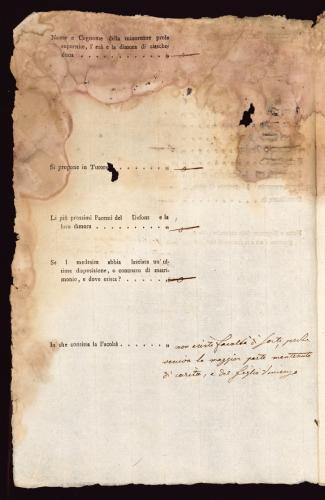 Nome e Cognome della minorenne prole
superstite, l'età e la dimora di ciascheduna . . . . . . . . . . . . "
Si propone in Tutore . . . . . . . . "
Li più prossimi Parenti del Defont e la
loro dimora . . . . . . . . . . "
Se l medesim abbia lasciata un'ultima
disposizione, o contratto di matrimonio,
e dove esista? . . . . . . "
In che consista la Facoltà . . . . . . . "
non existe facoltà di sorte, perche
veniva la maggior parte mantenuto
di carità, e dal figlio Vincenzo